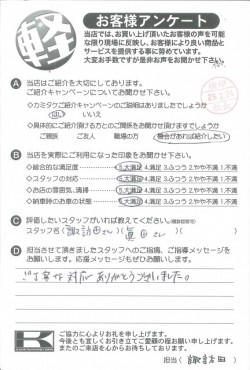 軽 お客様アンケート
当店では、お買い上げ頂いたお客様の声を可能
な限り現場に反映し、お客様により良い商品と
サービスを提供する事に努めています。
大変お手数ですが是非お声をお聞かせ下さい。
A 当店はご紹介を大切にしております。
ご紹介キャンペーンについてお聞かせ下さい。
◇カミタケご紹介キャンペーンのご説明はありましたでしょうか
はい いいえ
◇具体的にご紹介頂ける方との関係をお聞かせ頂けますでしょうか
ご親族 ご友人 職場の方 機会があれば紹介したい
B 当店を実際にご利用になった印象をお聞かせ下さい。
◇総合的な満足度 5.大満足 4.満足 3.ふつう 2.やや不満 1.不満
◇スタッフの対応 5.大満足 4.満足 3.ふつう 2.やや不満 1.不満
◇お店の雰囲気、清掃 5.大満足 4.満足 3.ふつう 2.やや不満 1.不満
◇納車時のお車の状態 5.大満足 4.満足 3.ふつう 2.やや不満 1.不満
C 評価したいスタッフがいれば教えてください。(複数回答可)
スタッフ名(諏訪田さん)(眞田さん)
D 担当させて頂きましたスタッフへのご指摘、ご指導メッセージを
お願いします。応援メッセージもぜひお願いします。
ご丁寧な対応ありがとうございました。
K
ご協力に心よりお礼を申し上げます。
今後とも宜しくお引き立てご愛顧の程お願い申し上げます。
またのご来店を心からお待ちしております。
担当(諏訪田)